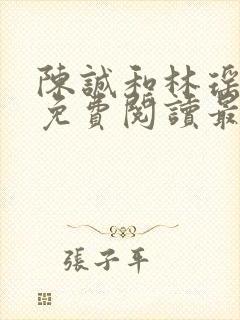 陳誠和林瑤
免費閱讀最
張子平